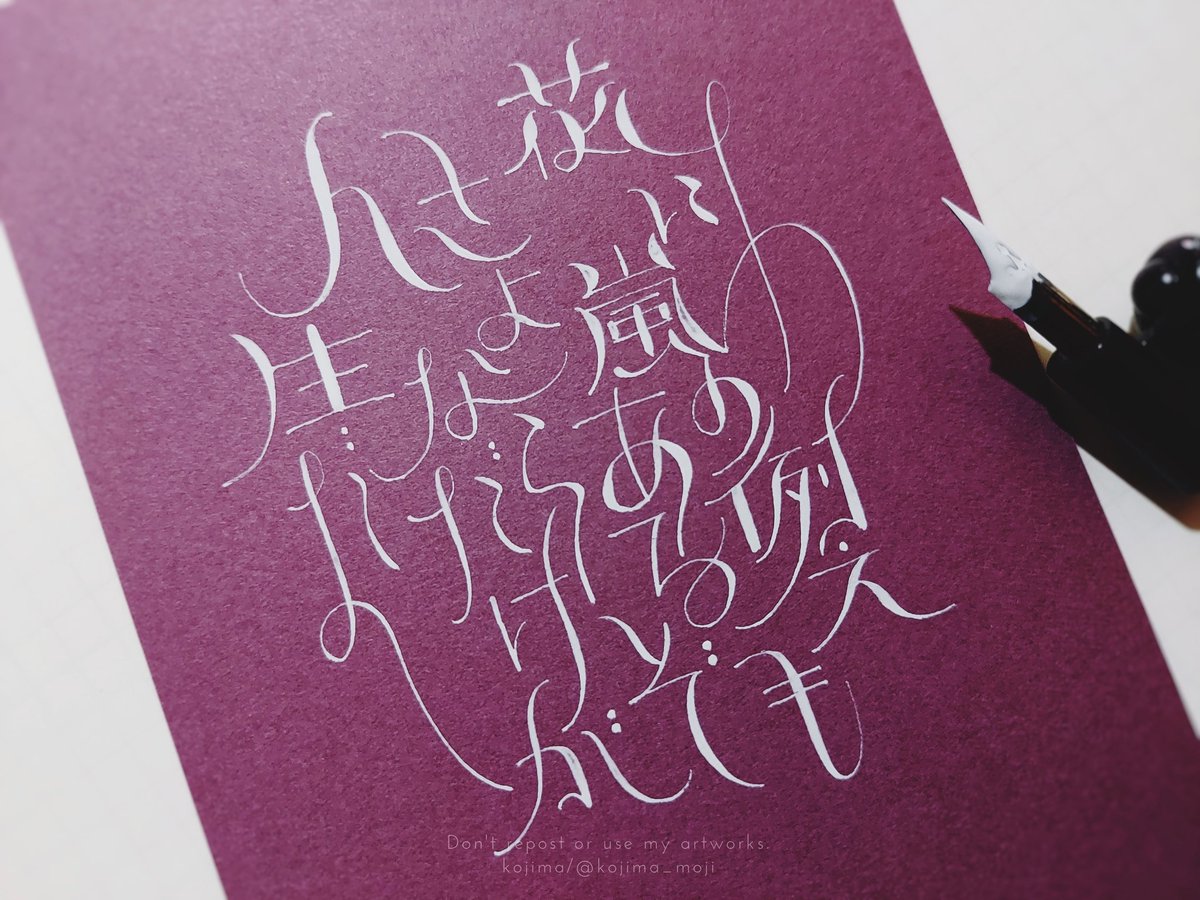 花に嵐の
例えも
あるぞ
さよなら
だけが
人生だ
Don't repost or use my artworks.
kojima/@kojima_moji